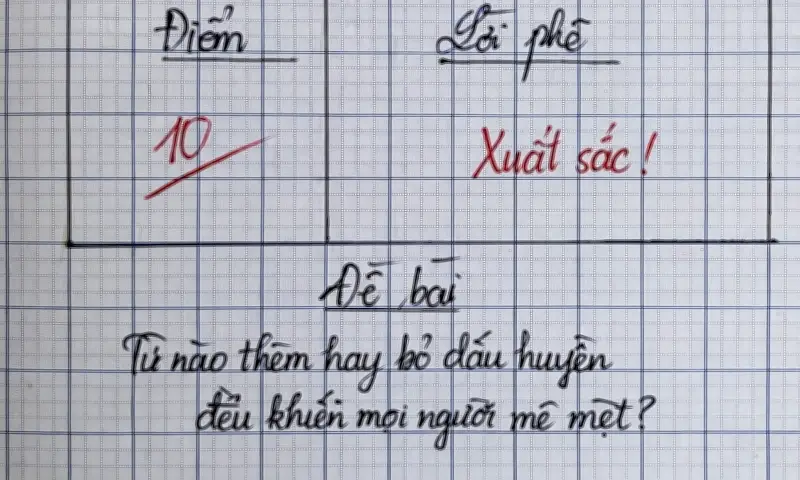 Điểm
Lời phê
10
Xuất sắc!
Đề bài
Từ nào thêm hay bỏ dấu huyền
đều khiến mọi người mê mệt?